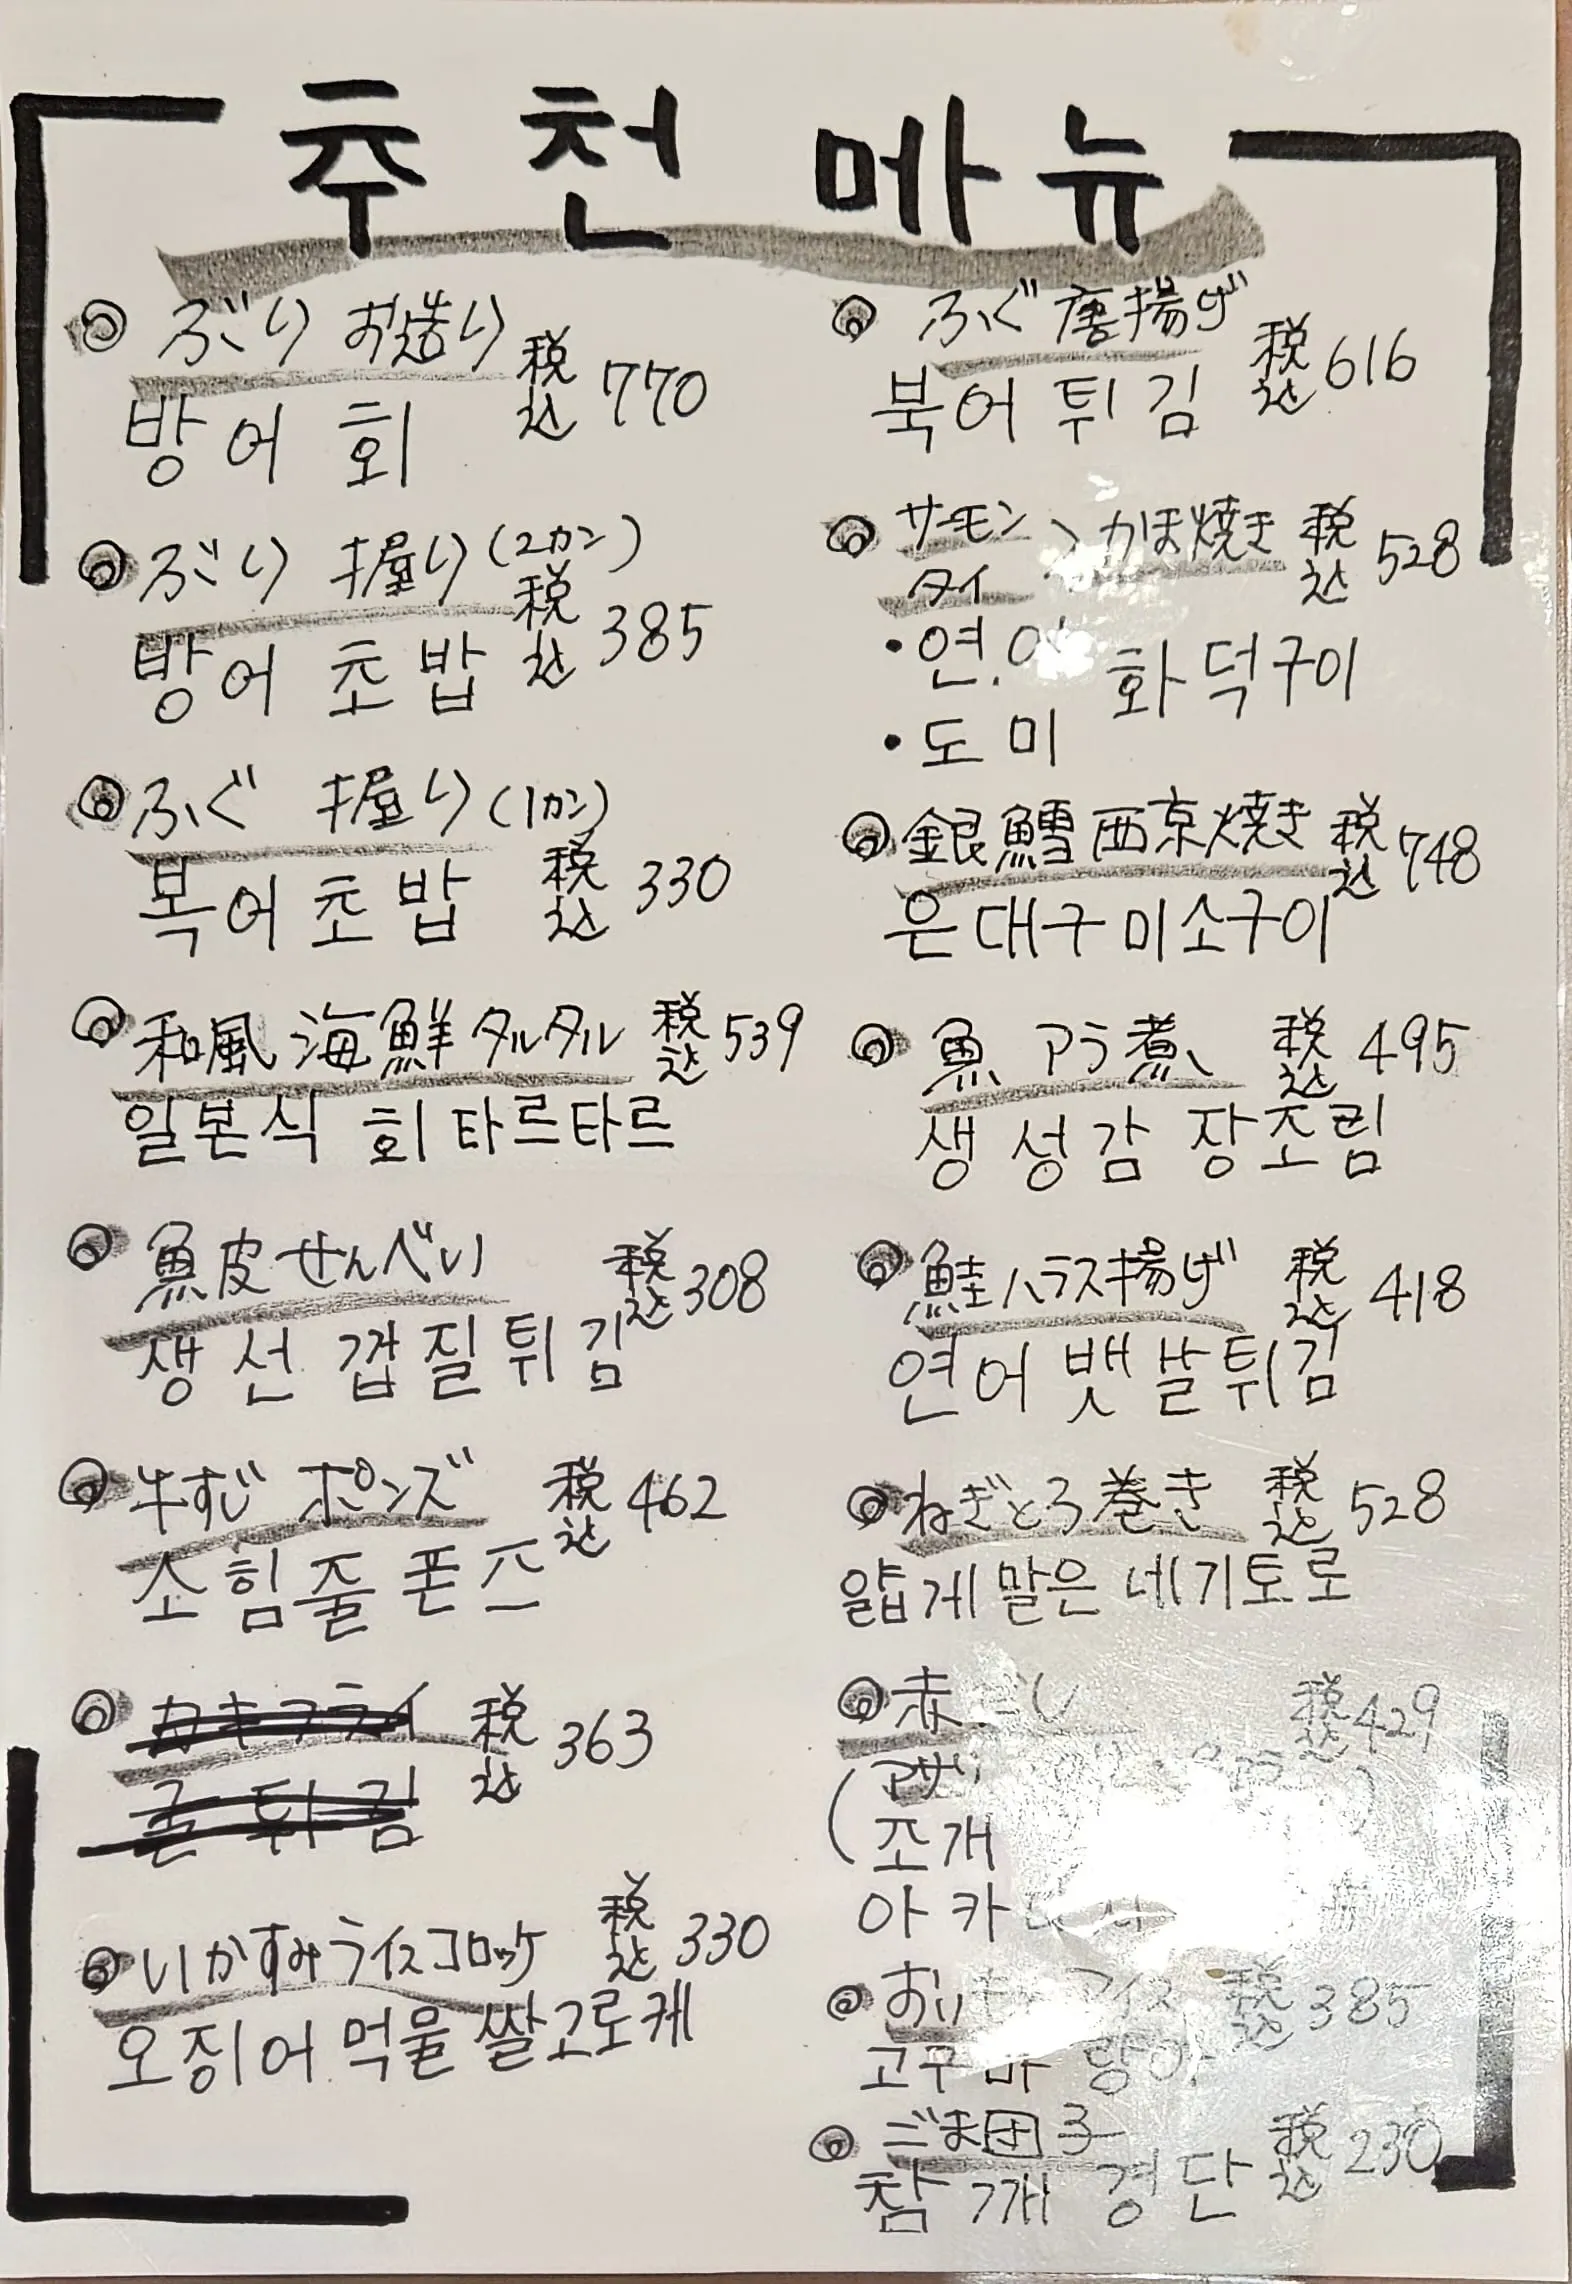 추천 메뉴
◎ ぶり お造り 税込 770
방어 회
◎ ぶり 握り (2カン) 税込 385
방어 초밥
◎ ふぐ 握り (1カン) 税込 330
복어 초밥
◎ 和風 海鮮 タルタル 税込 539
일본식 회 타르타르
◎ 魚皮せんべい 税込 308
생선 껍질튀김
◎ 牛すじ ポンズ 税込 462
소힘줄 폰즈
◎ カキフライ 税込 363
굴 튀김
◎ いかすみライスコロッケ 税込 330
오징어 먹물 쌀고로케
◎ ふぐ 唐揚げ 税込 616
북어 튀김
◎ サーモン
タイ
かま焼き 税込 528
・연어 화덕구이
・도미
◎ 銀鱈西京焼き 税込 748
은대구미소구이
◎ 魚 アラ煮 税込 495
생성감 장조림
◎ 鮭ハラス揚げ 税込 418
연어 뱃살튀김
◎ ねぎとろ巻き 税込 528
얇게 말은 네기토로
◎ 赤 税込 429
조개
◎ アイス 税込 385
고구마
◎ ごま団子 税込 230
참깨 경단